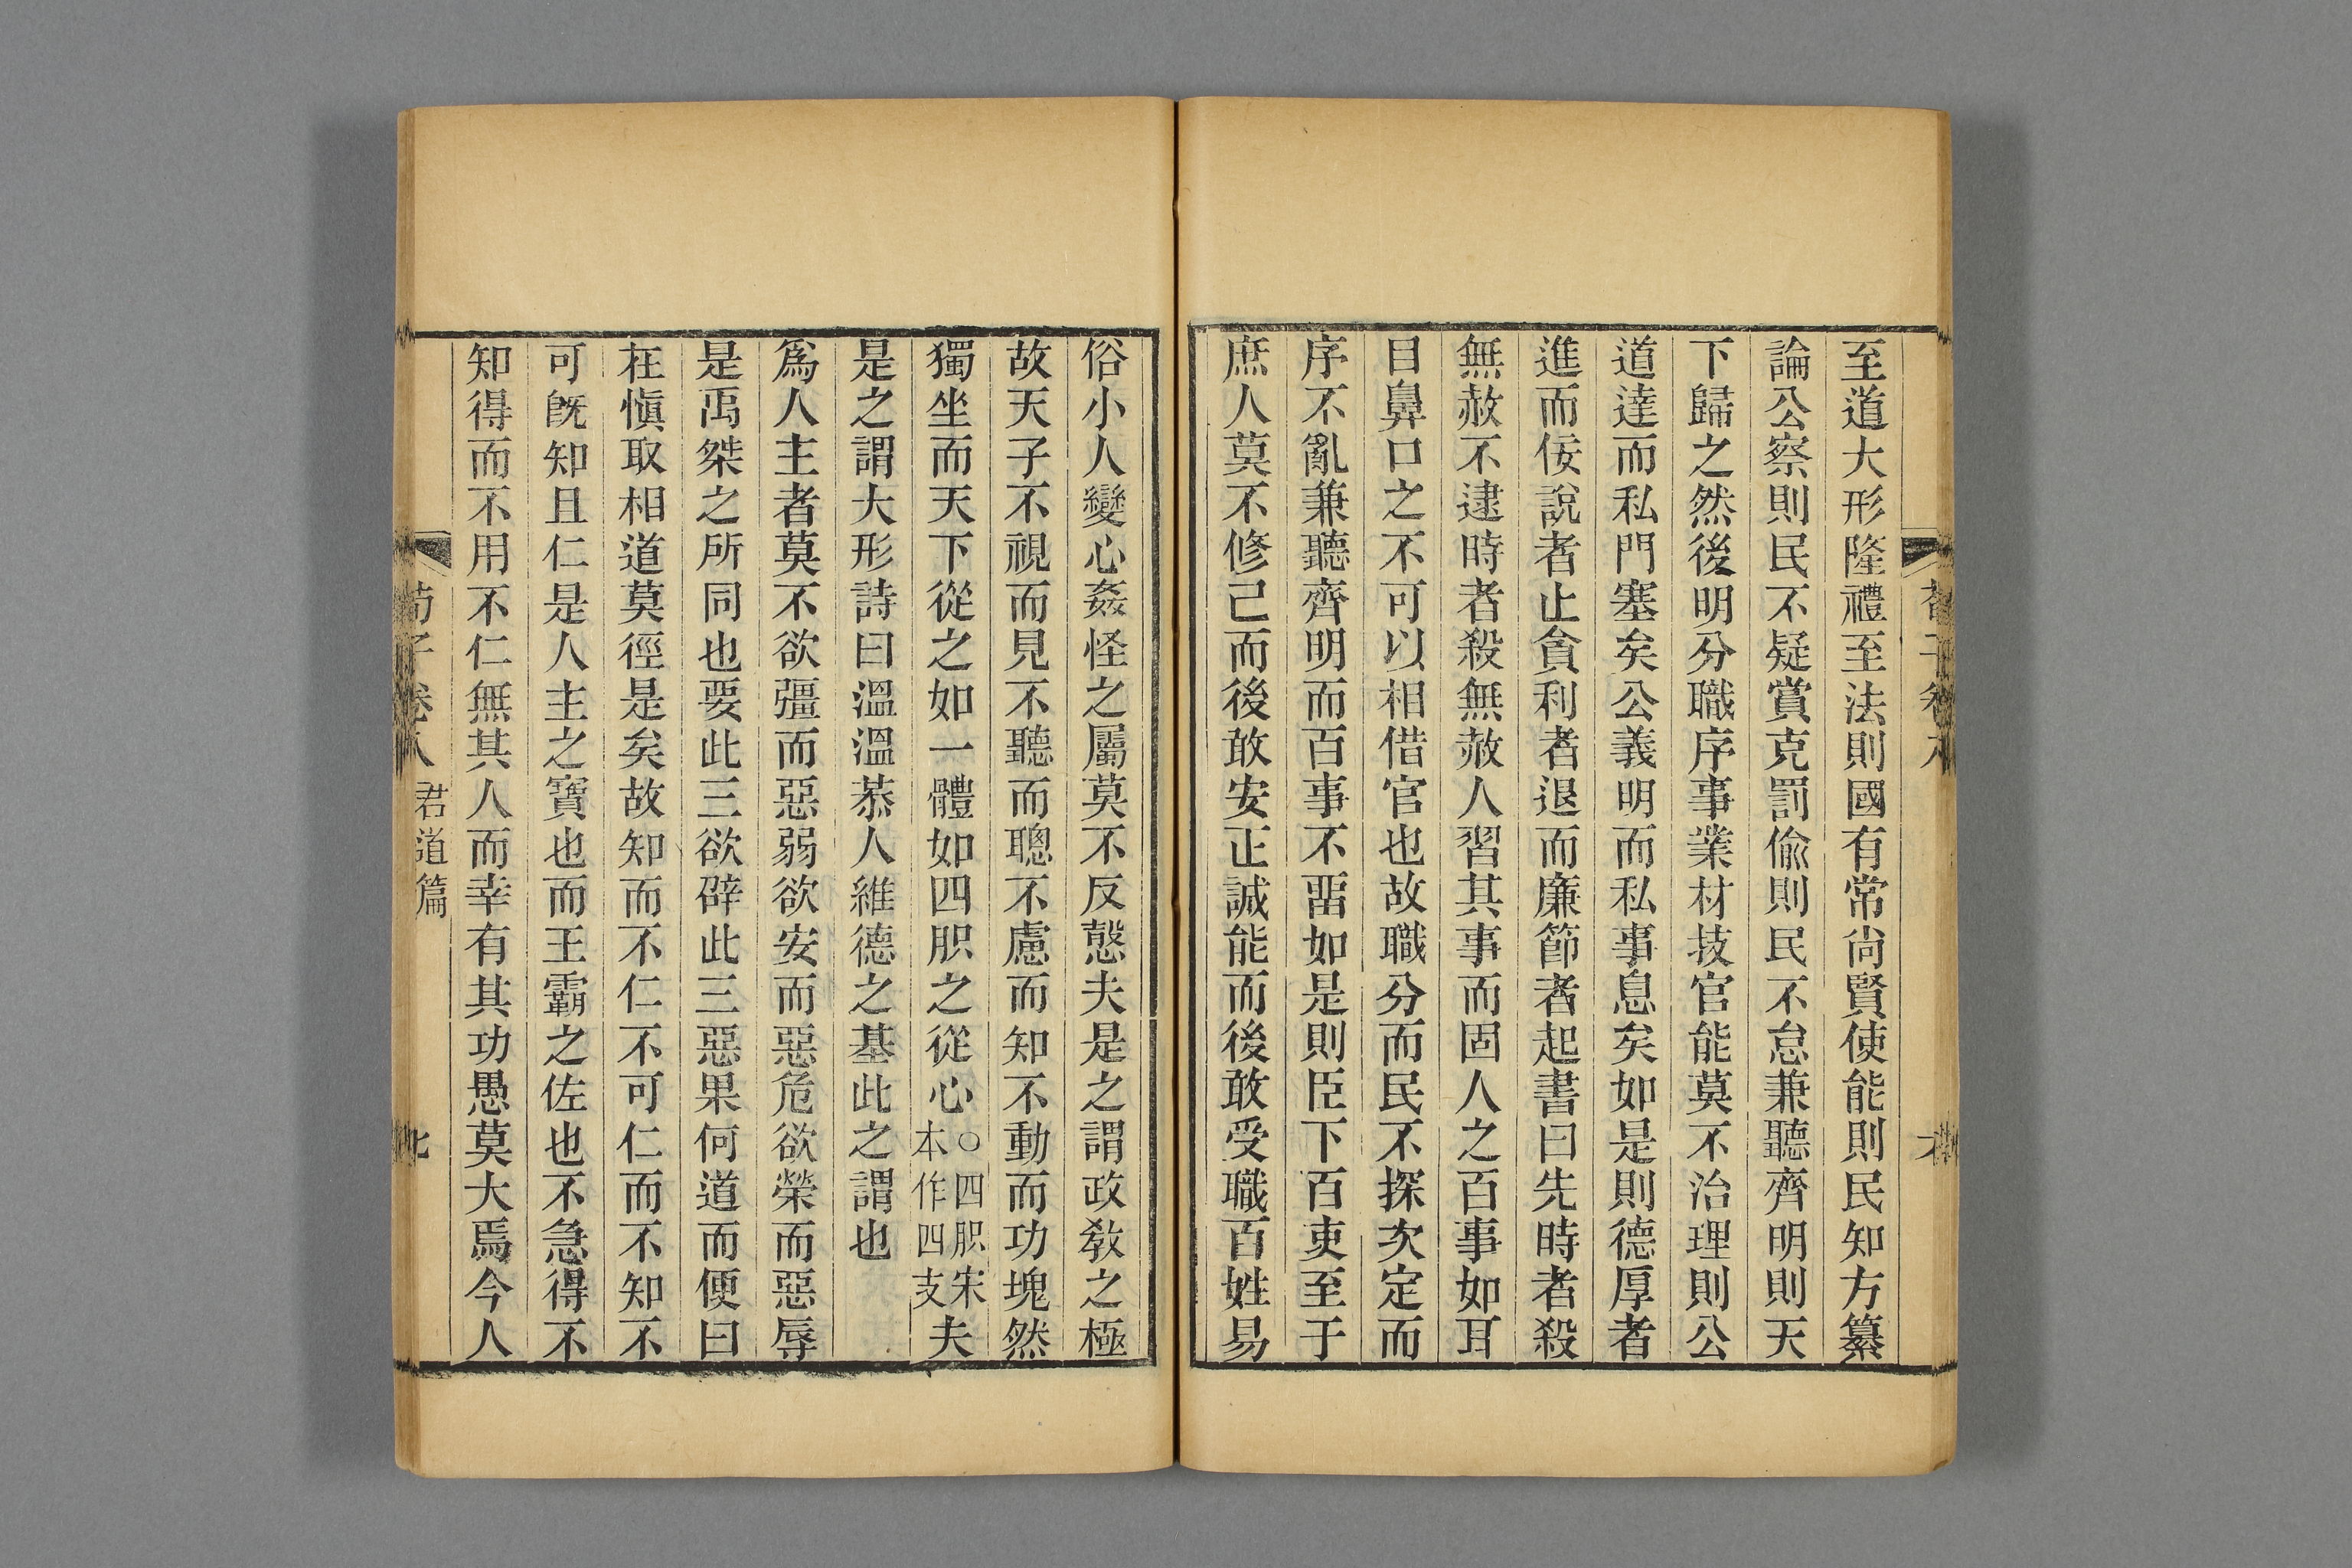 至道大形隆禮至法則國有常尚賢使能則民知方纂
論公察則民不疑賞克罰偷則民不怠兼聽齊明則天
下歸之然後明分職序事業材技官能莫不治理則公
道達而私門塞矣公義明而私事息矣如是則德厚者
進而佞說者止貪利者退而廉節者起書曰先時者殺
無赦不逮時者殺無赦人習其事而固人之百事如耳
目鼻口之不可以相借官也故職分而民不探次定而
序不亂兼聽齊明而百事不畱如是則臣下百吏至于
庶人莫不修己而後敢安正誠能而後敢受職百姓易
俗小人變心姦怪之屬莫不反愨夫是之謂政敎之極
故天子不視而見不聽而聰不慮而知不動而功塊然
獨坐而天下從之如一體如四胑之從心○四胑宋本作四支夫
是之謂大形詩曰溫溫恭人維德之基此之謂也
爲人主者莫不欲彊而惡弱欲安而惡危欲榮而惡辱
是禹桀之所同也要此三欲辟此三惡果何道而便曰
在愼取相道莫徑是矣故知而不仁不可仁而不知不
可旣知且仁是人主之寶也而王霸之佐也不急得不
知得而不用不仁無其人而幸有其功愚莫大焉今人
荀子卷八 君道篇